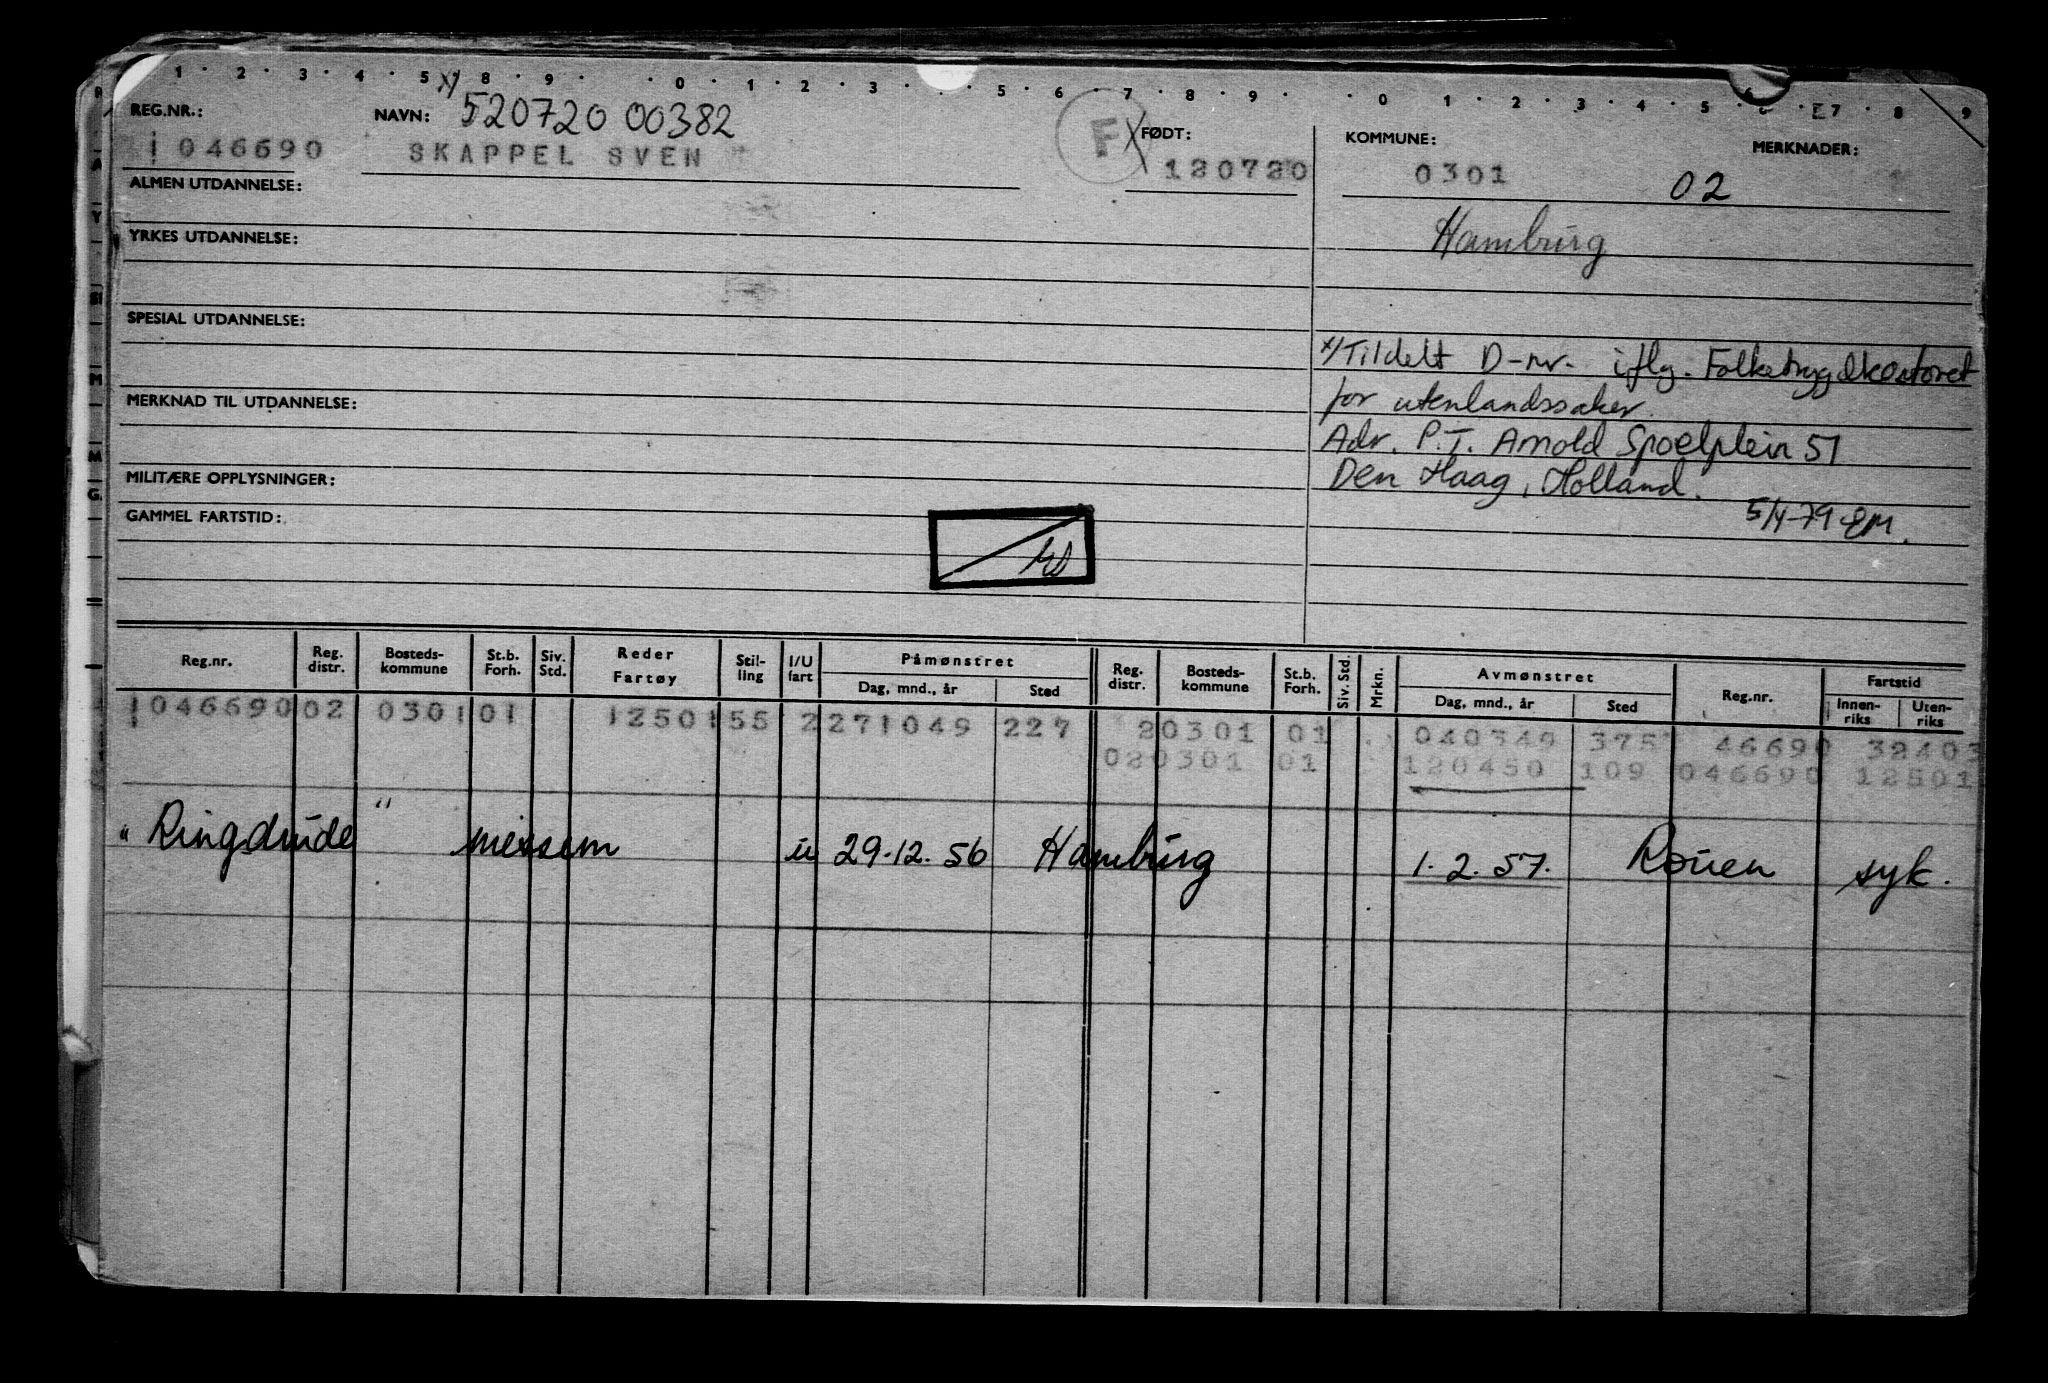 1 · 2 · 3 · 4 · 5 8 · 9 · · 0 · 1 · 2 · 3 · 5 · 6 · 7 · 8 · 9 · · 0 · 1 · 2 · 3 · 4 · 5 · 7 · 8 · 9
REG.NR.: NAVN: x) 520720 00382 F X FØDT: KOMMUNE: MERKNADER:
1046690 SKAPPEL SVEN 120720 0301 02
ALMEN UTDANNELSE:
YRKES UTDANNELSE: Hamburg
SPESIAL UTDANNELSE:
x) Tildelt D-nr. iflg. Folketrygdkontoret
MERKNAD TIL UTDANNELSE: for utenlandssaker.
Adr. P.T. Arnold Spoelplein 51
MILITÆRE OPPLYSNINGER: Den Haag, Holland.
GAMMEL FARTSTID: 5/4-79 EM.
Reg.nr. Reg. distr. Bosteds-kommune St.b. Forh. Siv. Std. Reder Fartøy Stil-ling I/U fart Påmønstret Dag, mnd., år Sted Reg. distr. Bosteds-kommune St.b. Forh. Siv. Std. Mrkn. Avmønstret Dag, mnd., år Sted Reg.nr. Fartstid Innen-riks Uten-riks
1046690 02 0301 01 12501 55 2 271049 227 20301 01 040349 375 46690 32403
020301 01 120450 109 046690 12501
"Ringdrude" messem u 29.12.56 Hamburg 1.2.57. Rouen syk.